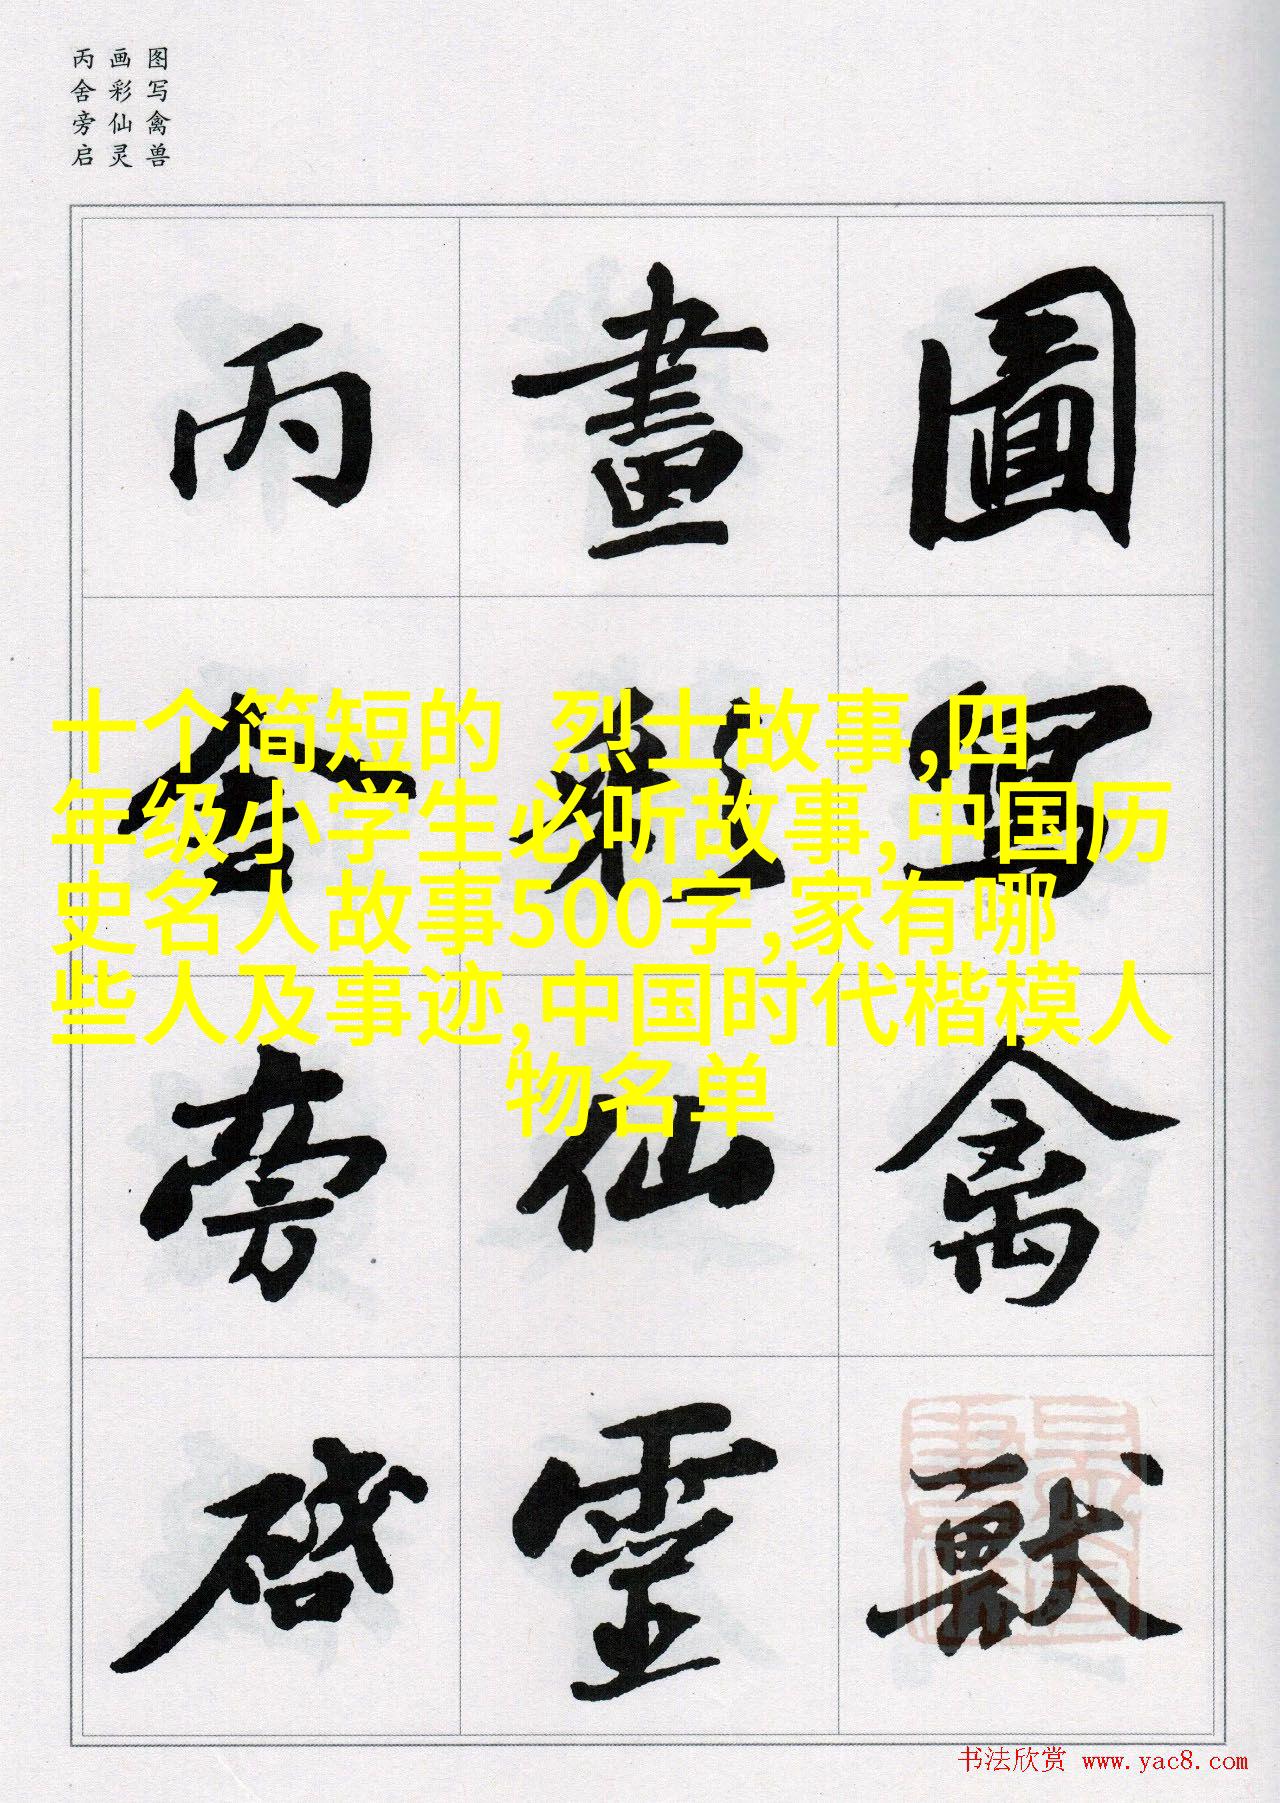 图写禽兽
画彩仙灵
丙舍旁启
圖寫禽獸
畫彩仙靈
丙舍旁啓
十个简短的 烈士故事,四
年级小学生必听故事,中国历
史名人故事500字,家有哪
些人及事迹,中国时代楷模人
物名单
书法欣赏 www.yac8.com